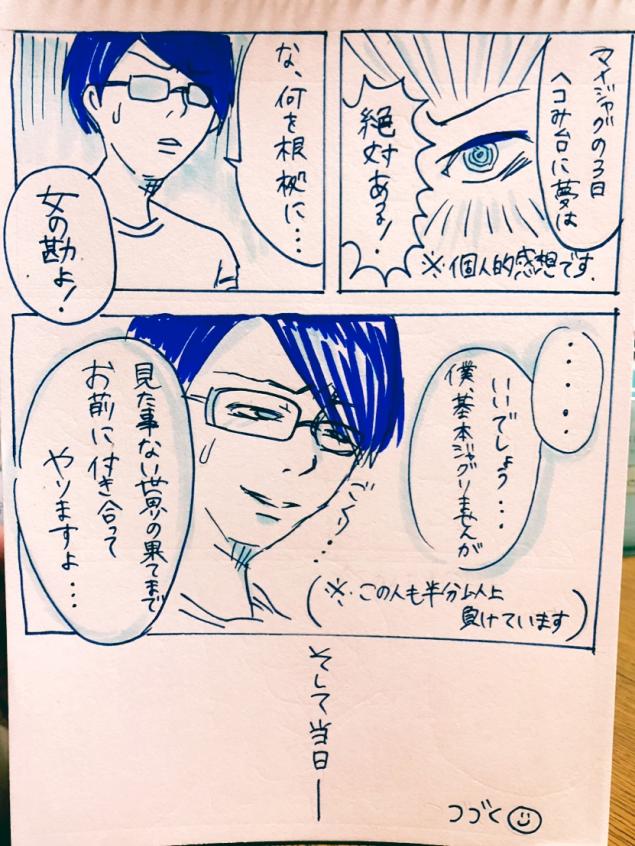 マイジャグの3日
ヘコみ台に夢は
絶対ある!
※個人的感想です.
な、何を根拠に・・・
女の勘よ!
・・・・・
いいでしょう・・・
僕、基本ジャグりませんが
ごくり・・・
(※この人も半分以上
負けています)
見た事ない世界の果てまで
お前に付き合って
やりますよ・・・
そして当日―
つづく